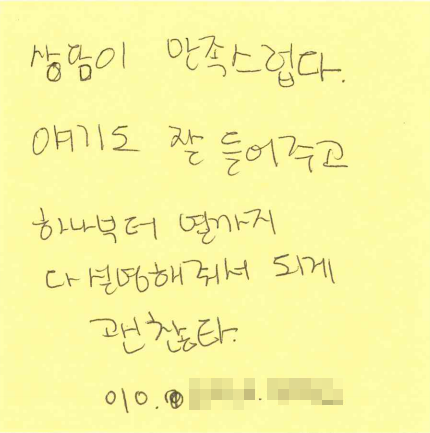 상담이 만족스럽다.
얘기도 잘 들어주고
하나부터 열까지
다 설명해줘서 되게
괜찮다.
010.